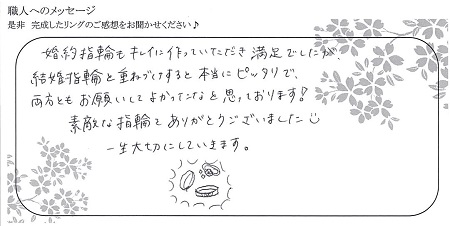 職人へのメッセージ
是非 完成したリングのご感想をお聞かせください♪
婚約指輪もキレイに作っていただき満足でしたが、
結婚指輪と重ねづけすると本当にピッタリで、
両方ともお願いしてよかったなと思っております!
素敵な指輪をありがとうございました
一生大切にしていきます。